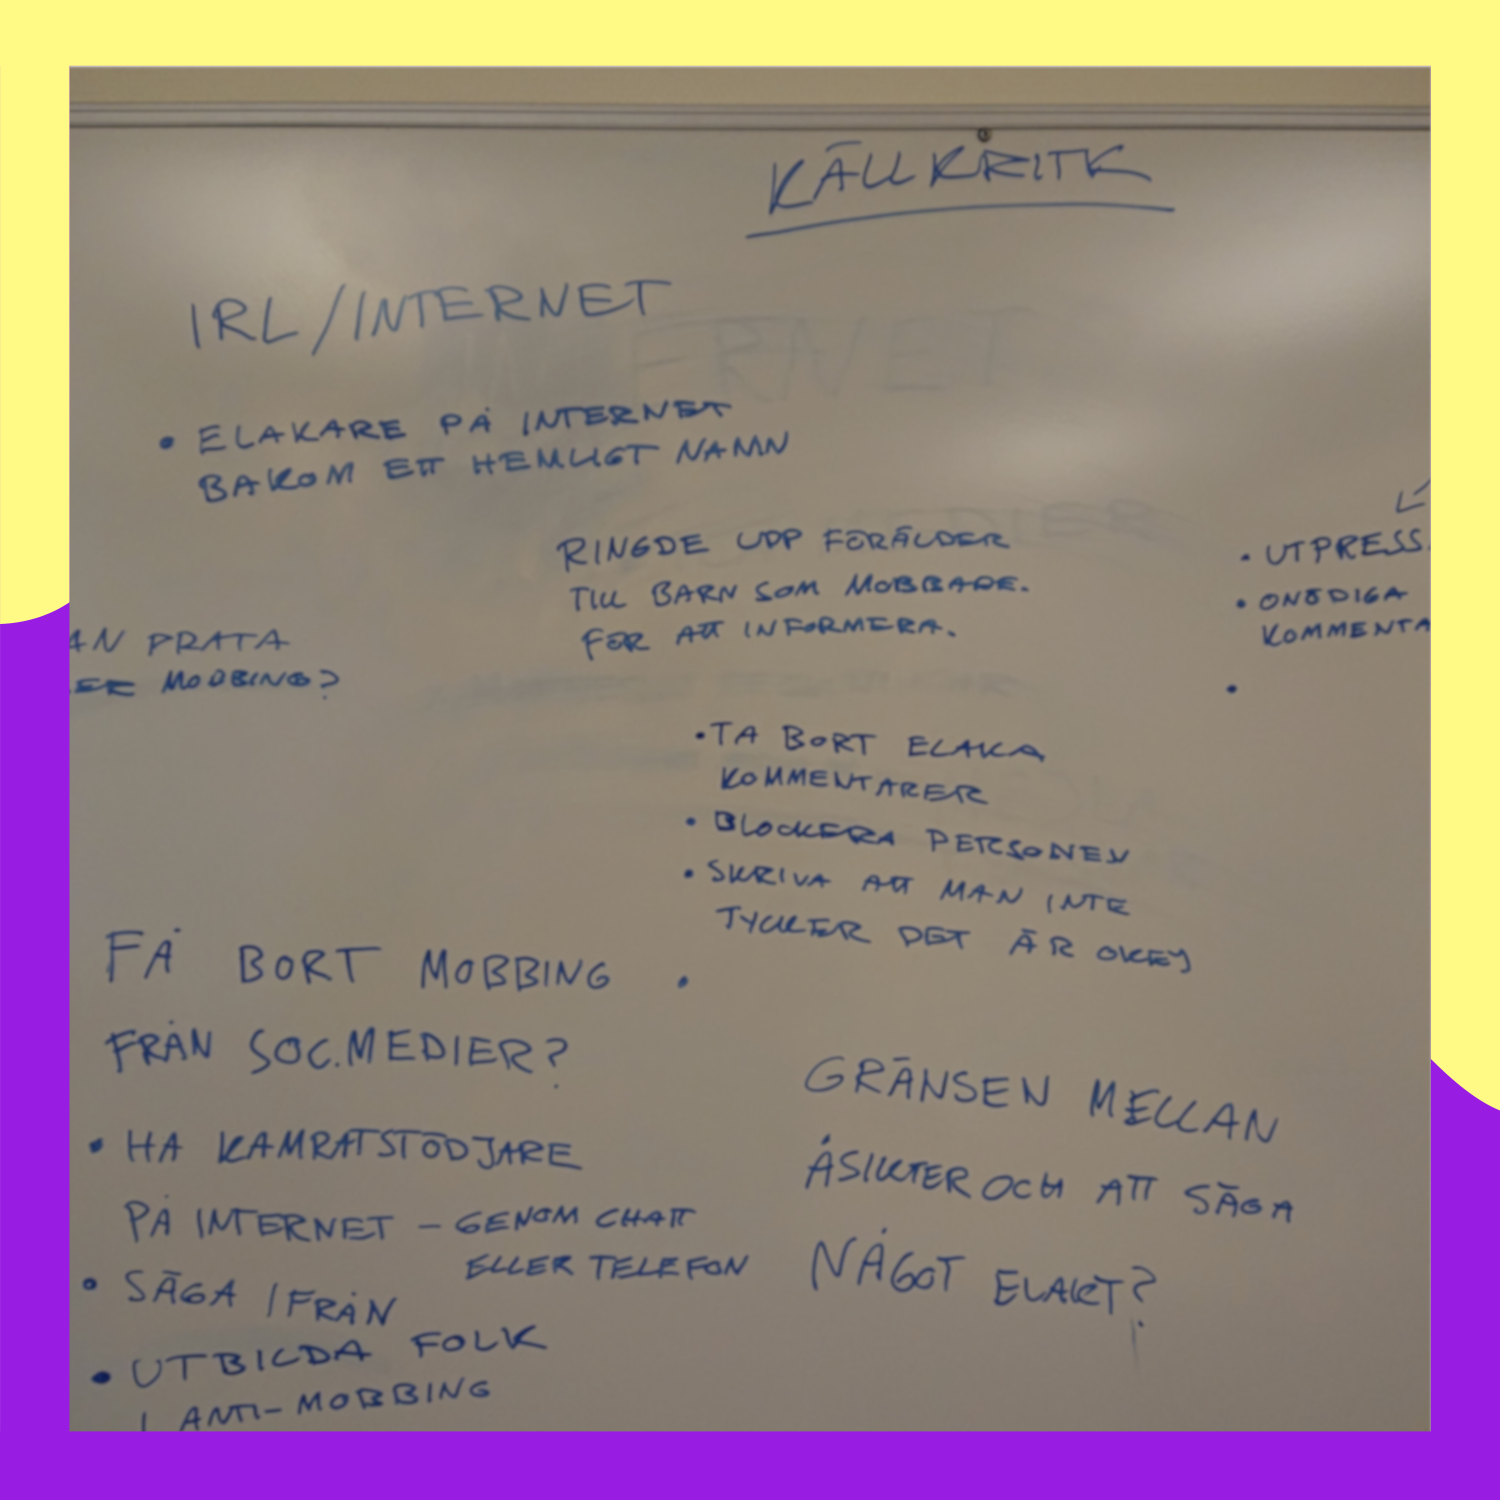 KÄLLKRITK
IRL/INTERNET
• ELAKARE PÅ INTERNET
BAKOM ETT HEMLIGT NAMN
RINGDE UPP FÖRÄLDER
TILL BARN SOM MOBBADE.
FÖR ATT INFORMERA.
• UTPRESS
• ONÖDIGA
KOMMENTA
•
AN PRATA
ER MOBBING?
• TA BORT ELAKA
KOMMENTARER
• BLOCKERA PERSONEN
• SKRIVA ATT MAN INTE
TYCKER DET ÄR OKEY
•
FÅ BORT MOBBING
FRÅN SOC.MEDIER?
• HA KAMRATSTÖDJARE
PÅ INTERNET – GENOM CHATT
ELLER TELEFON
• SÄGA IFRÅN
• UTBILDA FOLK
I ANTI-MOBBING
GRÄNSEN MELLAN
ÅSIKTER OCH ATT SÄGA
NÅGOT ELAKT?